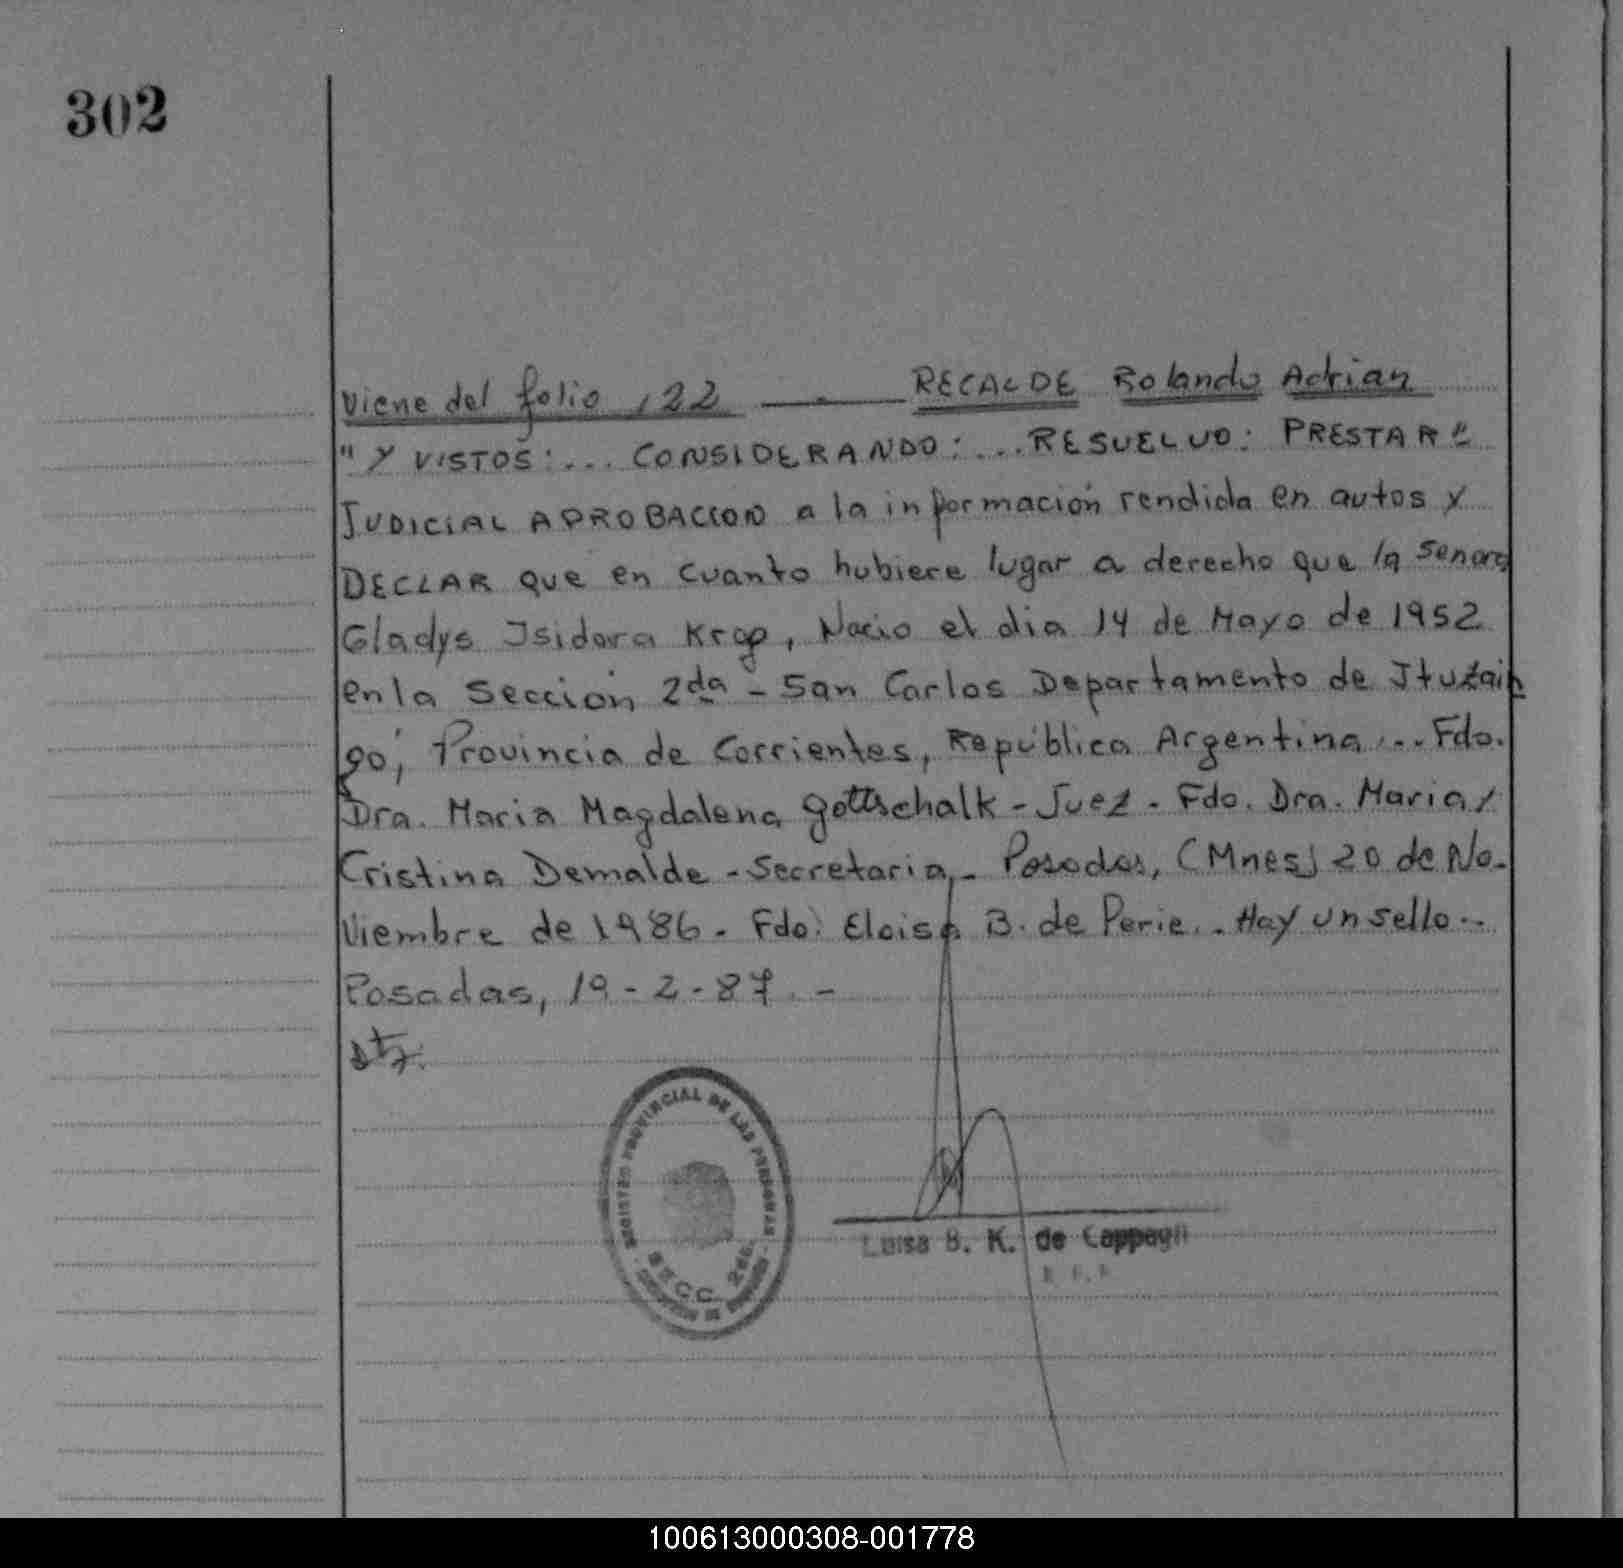 302
Viene del folio 122 — RECALDE Rolando Adrian
"Y VISTOS:... CONSIDERANDO:... RESUELVO: PRESTAR"
JUDICIAL APROBACION a la información rendida en autos y
DECLAR que en cuanto hubiere lugar a derecho que la Senora
Gladys Isidora Krog, Nacio el dia 14 de Mayo de 1952
en la Sección 2da - San Carlos Departamento de Ituzain
gó, Provincia de Corrientes, República Argentina... Fdo.
Dra. Maria Magdalena Gottschalk - Juez - Fdo. Dra. Maria/
Cristina Demalde - Secretaria - Posadas, (Mnes) 20 de No-
viembre de 1986. Fdo: Eloisa B. de Perie.. Hay un sello..
Posadas, 19-2-87.-
REGISTRO PROVINCIAL DE LAS PERSONAS
SECC. 2da.
Luisa B. K. de Cappagli
100613000308-001778